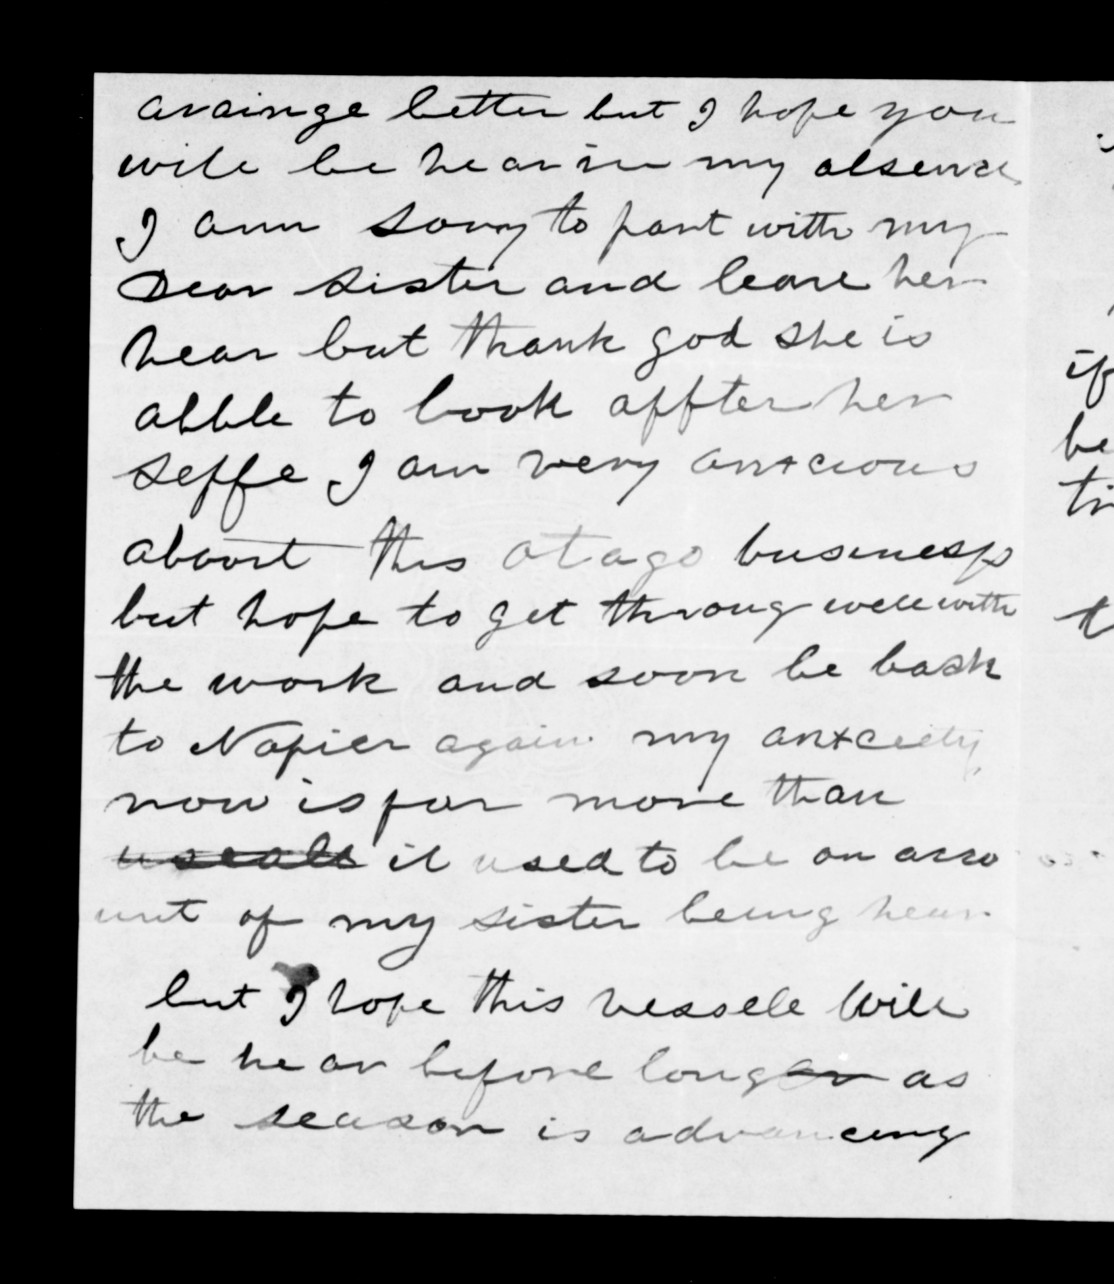 arainge better but I hope you
wile be hear in my absence
I am sorry to part with my
Dear sister and leave her
hear but thank god she is
abble to look affter her
seffe I am very antcious
about this otago business
but hope to get throug well with
the work and soon be back
to Napier again my antciety
now is far more than
useall it used to be on acco
unt of my sister being hear
but I hope this vessele will
be hear before longer as
the season is advancing
if
be